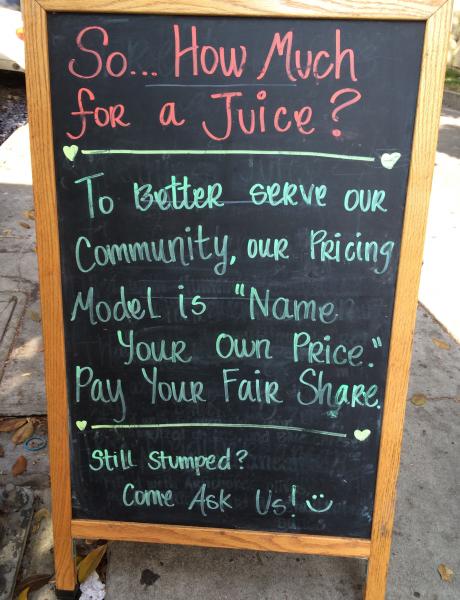 So... How Much
for a Juice?
To Better serve our
Community, our Pricing
Model is "Name
Your Own Price."
Pay Your Fair Share.
Still Stumped?
Come Ask Us!